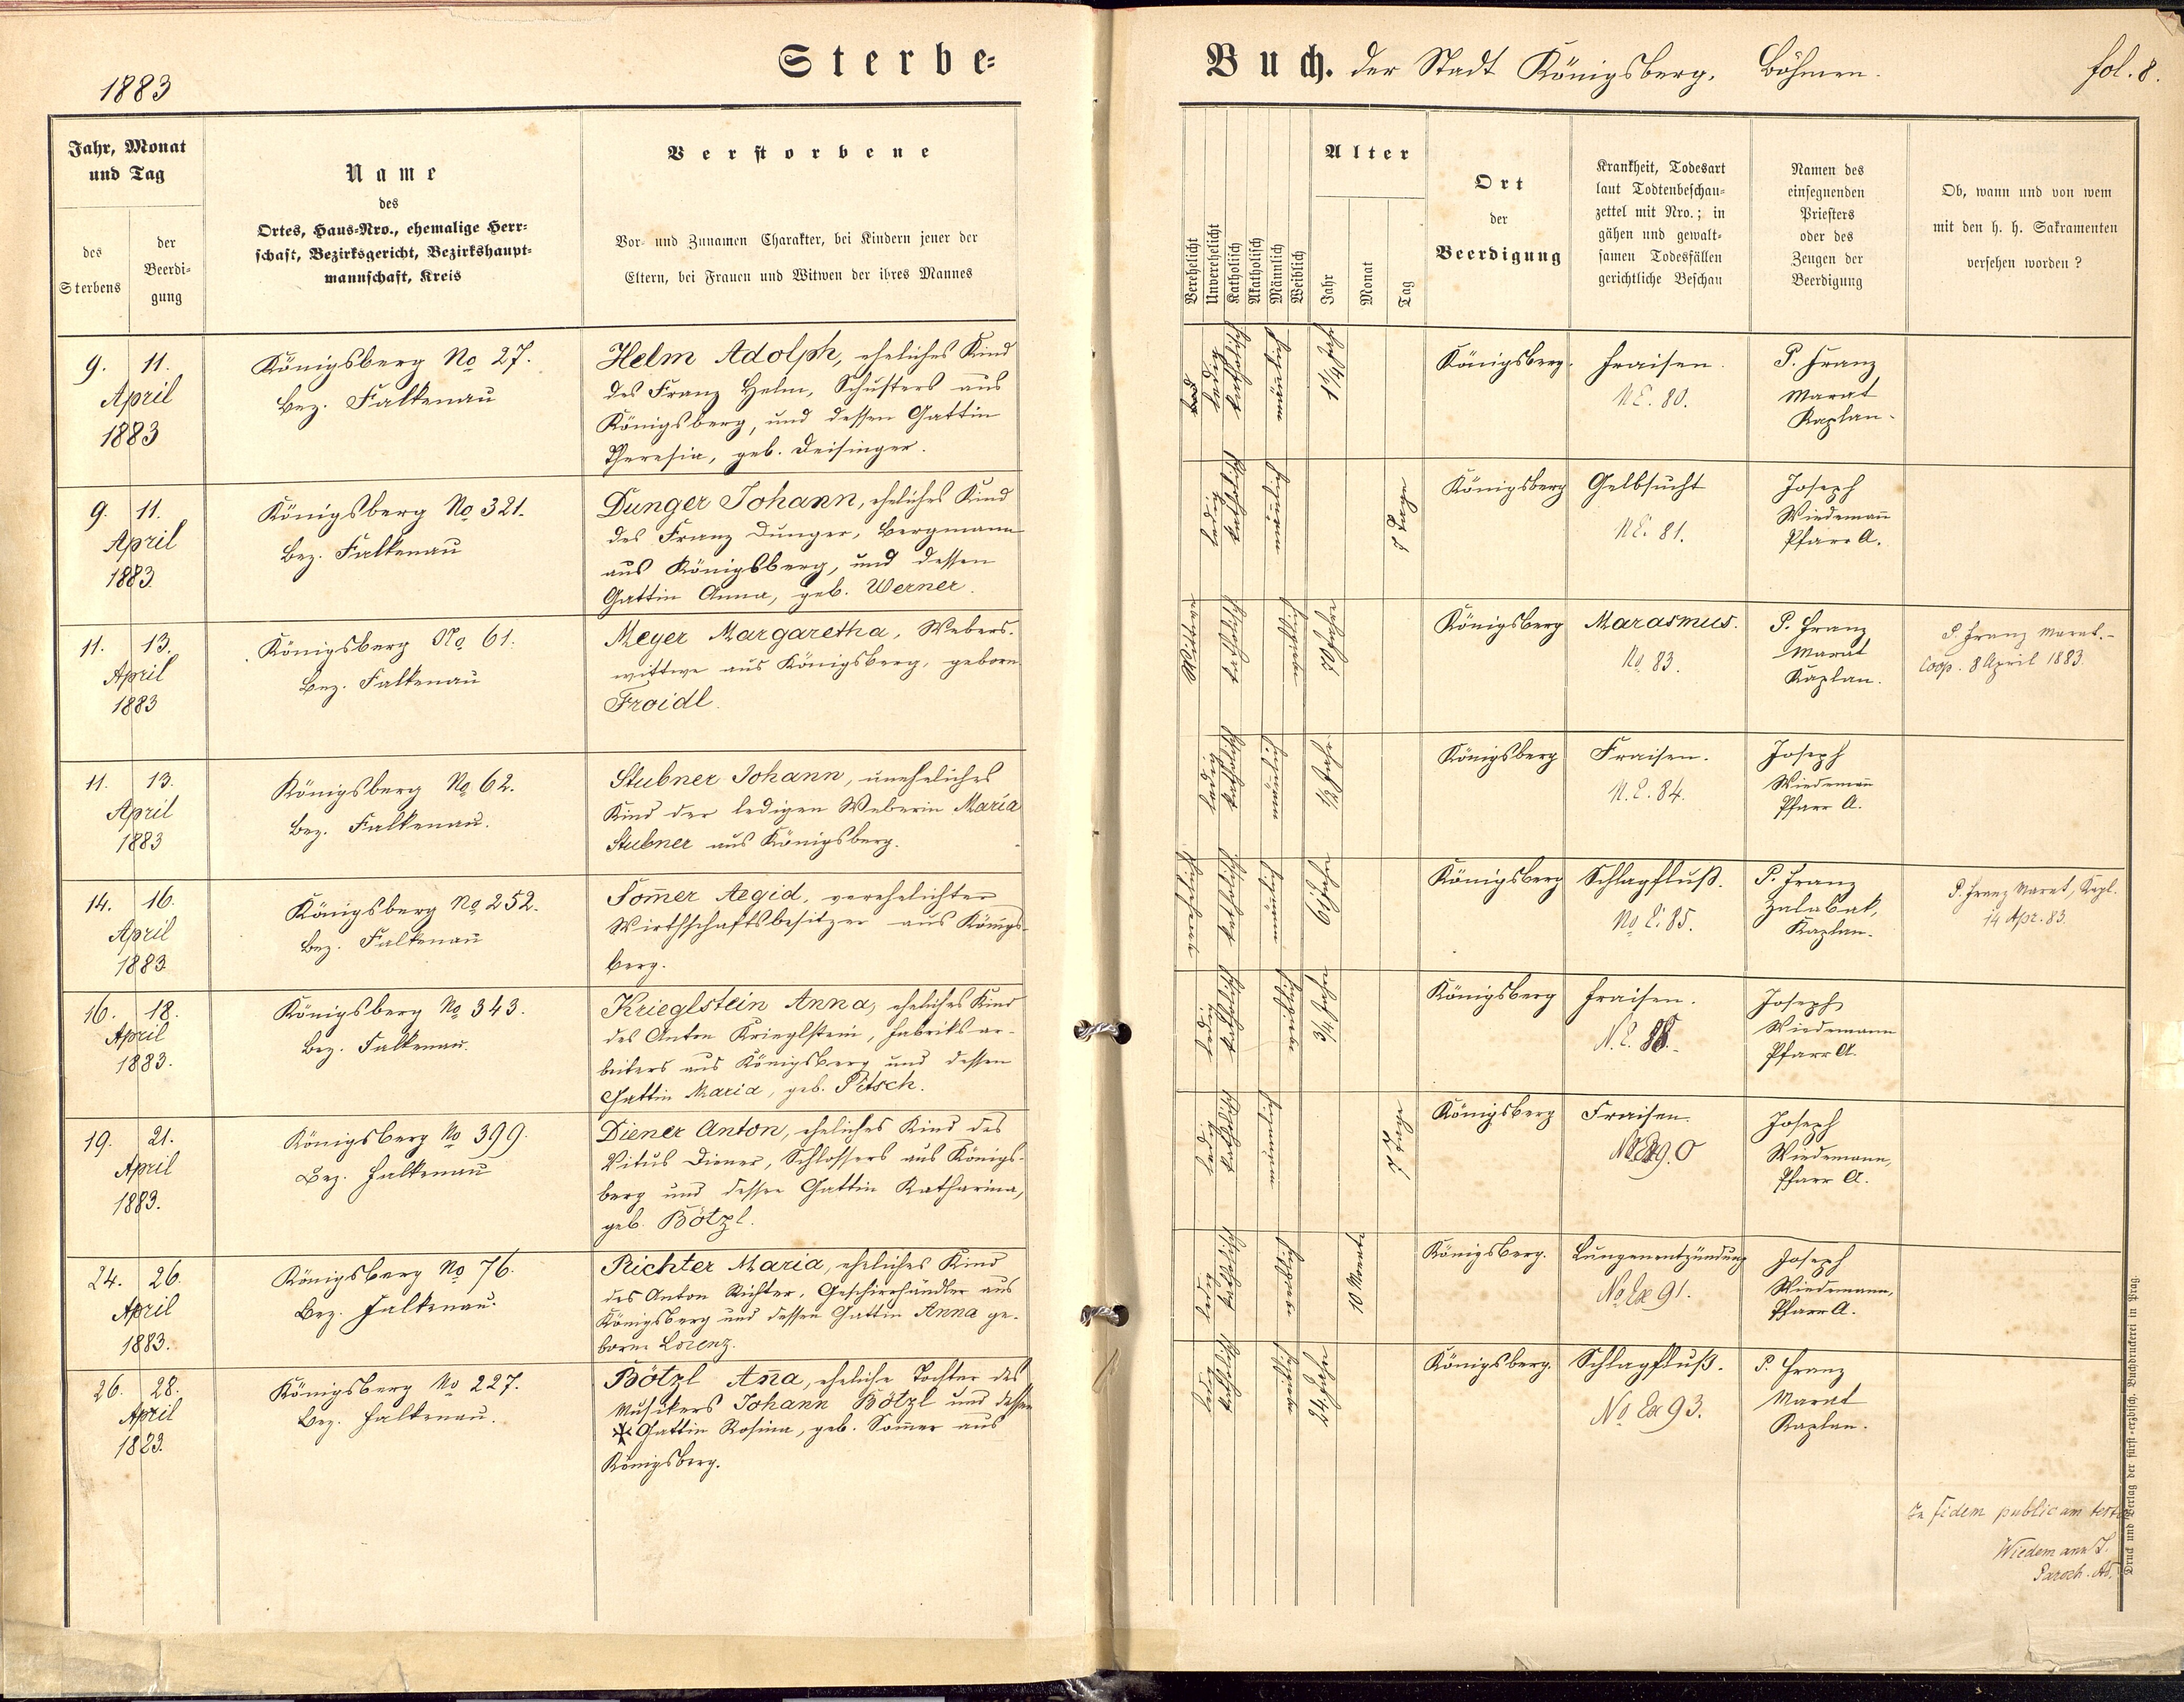 1883
Sterbe-
Jahr, Monat
und Tag
des
Sterbens
der
Beerdi-
gung
Name
des
Ortes, Haus-Nro., ehemalige Herr-
schaft, Bezirksgericht, Bezirkshaupt-
mannschaft, Kreis
Verstorbene
Vor- und Zunamen Charakter, bei Kindern jener der
Eltern, bei Frauen und Witwen der ihres Mannes
9. 11.
April
1883
Königsberg No 27.
Bez. Falkenau
Helm Adolph, eheliches Kind
des Franz Helm, Schusters aus
Königsberg, und dessen Gattin
Theresia, geb. Deisinger.
9. 11.
April
1883.
Königsberg No 321.
Bez. Falkenau
Dunger Johann, eheliches Kind
des Franz Dunger, Bergmann
aus Königsberg, und dessen
Gattin Anna, geb. Werner.
11. 13.
April
1883
Königsberg No 61.
Bez. Falkenau
Meyer Margaretha, Webers-
wittwe aus Königsberg, geborne
Froidl.
11. 13.
April
1883
Königsberg No 62.
Bez. Falkenau.
Stubner Johann, uneheliches
Kind der ledigen Weberin Maria
Stubner aus Königsberg.
14. 16.
April
1883
Königsberg No 252.
Bez. Falkenau
Som̄er Aegid, verehelichter
Wirthschaftsbesitzer aus Königs-
berg.
16. 18.
April
1883.
Königsberg No 343.
Bez. Falkenau.
Krieglstein Anna, eheliches Kind
des Anton Krieglstein, Fabriksar-
beiters aus Königsberg und dessen
Gattin Maria, geb. Pötsch.
19. 21.
April
1883.
Königsberg No 399.
Bez. Falkenau
Diener Anton, eheliches Kind des
Vitus Diener, Schlossers aus Königs-
berg und dessen Gattin Katharina,
geb. Bötzl.
24. 26.
April
1883.
Königsberg No 76.
Bez. Falkenau.
Richter Maria, eheliches Kind
des Anton Richter, Geschirrhändler aus
Königsberg und dessen Gattin Anna ge-
borne Lorenz.
26. 28.
April
1883.
Königsberg No 227.
Bez. Falkenau.
Bötzl An̄a, eheliche Tochter des
Musikers Johann Bötzl und dessen
Gattin Rosina, geb. Som̄er aus
Königsberg.
Buch. der Stadt Königsberg, Böhmen.
fol. 8.
Verehelicht
Unverehelicht
Katholisch
Akatholisch
Männlich
Weiblich
Alter
Jahr
Monat
Tag
Ort
der
Beerdigung
Krankheit, Todesart
laut Todtenbeschau-
zettel mit Nro.; in
gähen und gewalt-
samen Todesfällen
gerichtliche Beschau
Namen des
einsegnenden
Priesters
oder des
Zeugen der
Beerdigung
Ob, wann und von wem
mit den h. h. Sakramenten
versehen worden?
ledig
katholisch
1 1/4 Jahr
Königsberg.
Fraisen.
N.E. 80.
P. Franz
Marat
Kaplan.
ledig
katholisch
7 Tage
Königsberg
Gelbsucht
N.E. 81.
Joseph
Wiedeman̄
Pfarr A.
Wittwe
katholisch
70 Jahre
Königsberg
Marasmus.
No 83.
P. Franz
Marat
Kaplan.
P. Franz Marat.-
Coop. 8 April 1883.
ledig
katholisch
1/2 Jahr
Königsberg
Fraisen.
N.E. 84.
Joseph
Wiedeman̄
Pfarr A.
katholisch
61 Jahre
Königsberg
Schlagfluß.
No E. 85.
P. Franz
Kaplan.
P. Franz Marat, Kapl.
14 Apr. 83.
ledig
katholisch
3/4 Jahre
Königsberg
Fraisen.
N.E. 88.
Joseph
Wiedemann
Pfarr A.
ledig
katholisch
7 Tage
Königsberg
Fraisen.
90
Joseph
Wiedemann,
Pfarr A.
ledig
katholisch
10 Monate
Königsberg.
Lungenentzündung
No Ex 91.
Joseph
Wiedemann,
Pfarr A.
ledig
katholisch
24 Jahre
Königsberg.
Schlagfluß.
No Ex 93.
P. Franz
Marat
Kaplan.
In fidem publicam
Wiedemann J.
Paroch. Ad.
Druck und Verlag der fürst-erzbisch. Buchdruckerei in Prag.